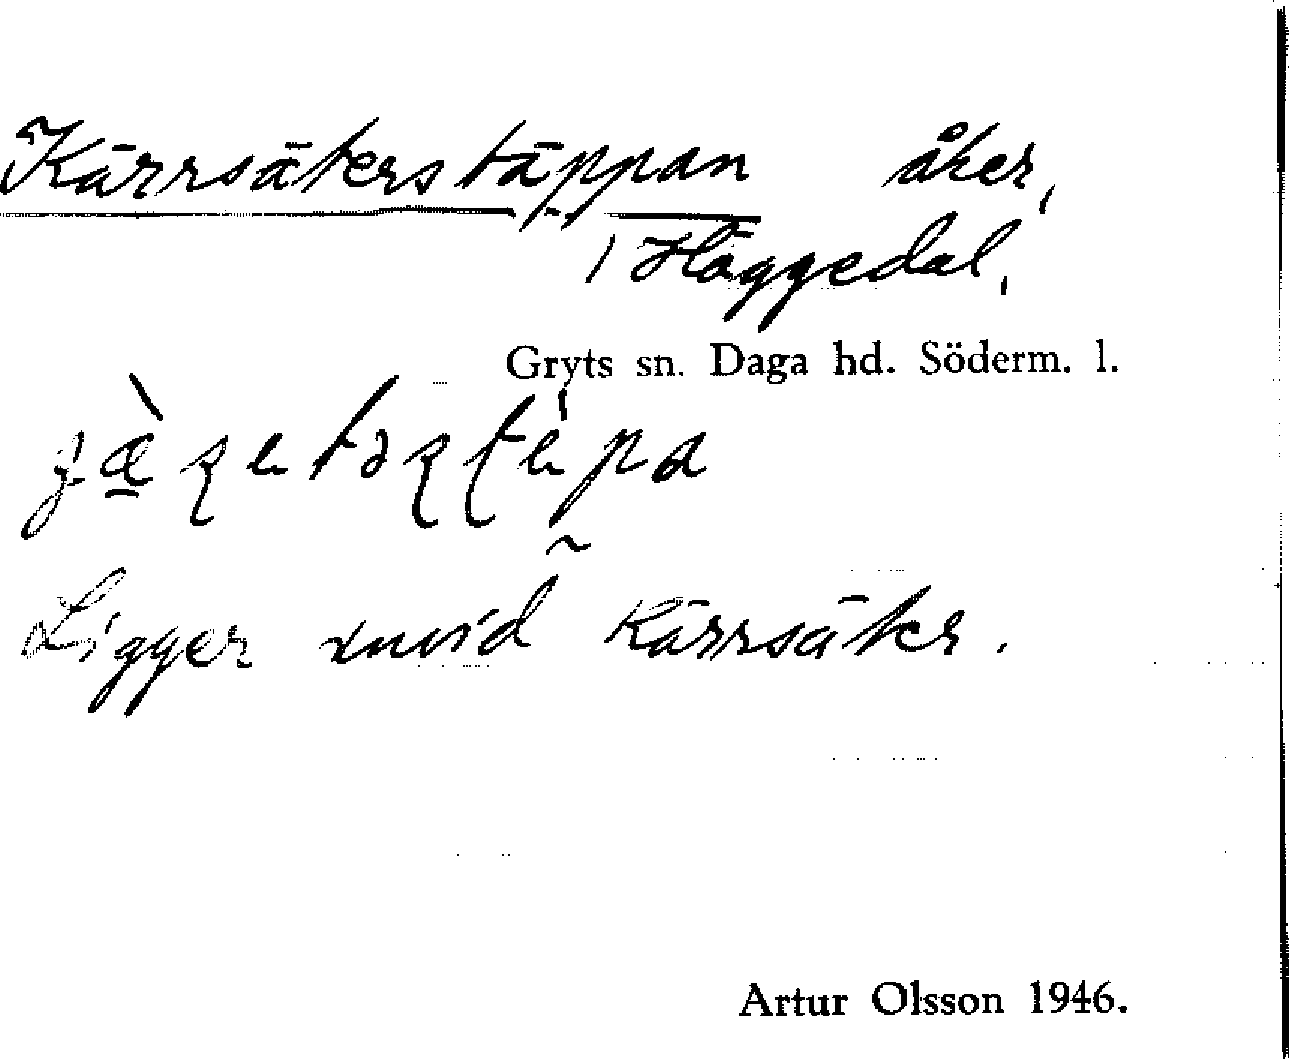 Kärrsäkerstäppan åker,
i Häggedal,
Gryts sn. Daga hd. Söderm. l.
Ligger invid Kärrsäker.
Artur Olsson 1946.